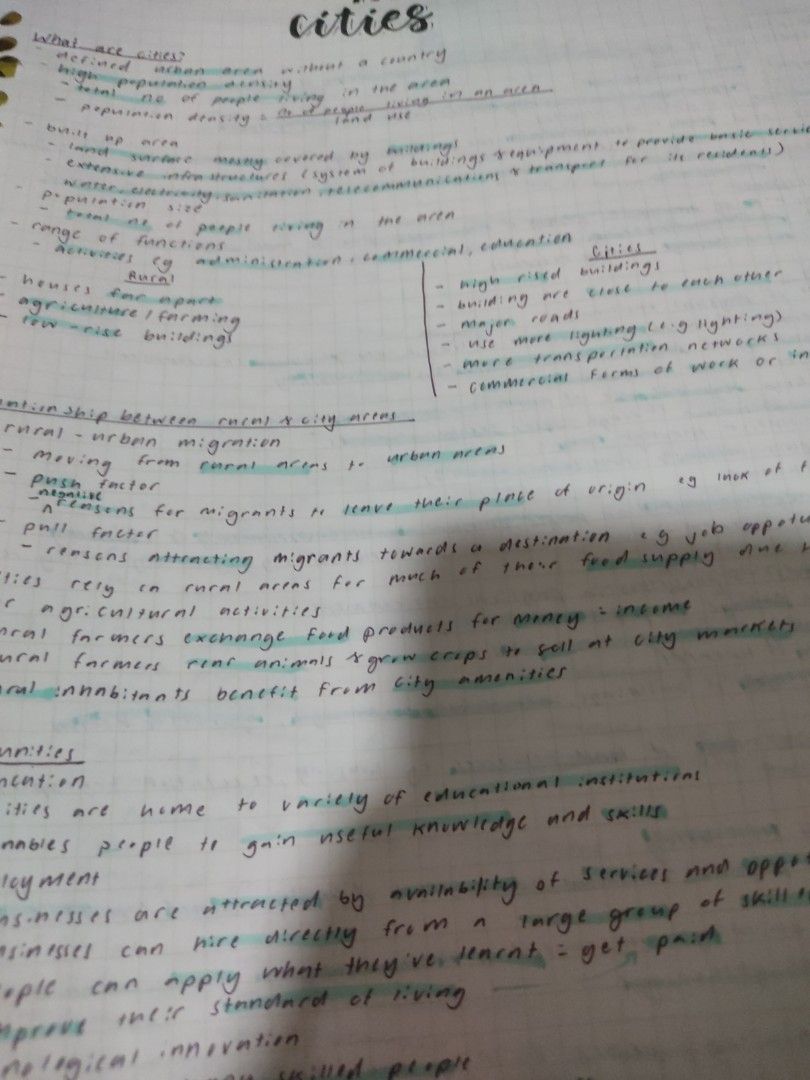 cities
What are cities?
- defined urban area without a country
- high population density
- total no of people living in the area
- population density = no of people living in an area
land use
- built up area
- land surface mostly covered by buildings
- extensive infrastructures (system of buildings & equipment to provide basic
water, electricity, sanitation, telecommunications & transport for its residents)
- population size
- total no of people living in the area
- range of functions
- activities eg administration, commercial, education
Rural
- houses far apart
- agriculture / farming
- low-rise buildings
Cities
- high rised buildings
- building are close to each other
- major roads
- use more lighting (e.g lighting)
- more transportation networks
- commercial forms of work or
between rural & city areas
rural-urban migration
- moving from rural areas to urban areas
- push factor
- negative reasons for migrants to leave their place of origin eg lack of
- pull factor
- reasons attracting migrants towards a destination e.g job
rely on rural areas for much of their food supply due
agricultural activities
farmers exchange food products for money = income
farmers rear animals & grow crops to sell at city markets
inhabitants benefit from city amenities
are home to variety of educational institutions
people to gain useful knowledge and skills
are attracted by availability of services and
can hire directly from a large group of
can apply what they've learnt = get paid
their standard of living
innovation
skilled people